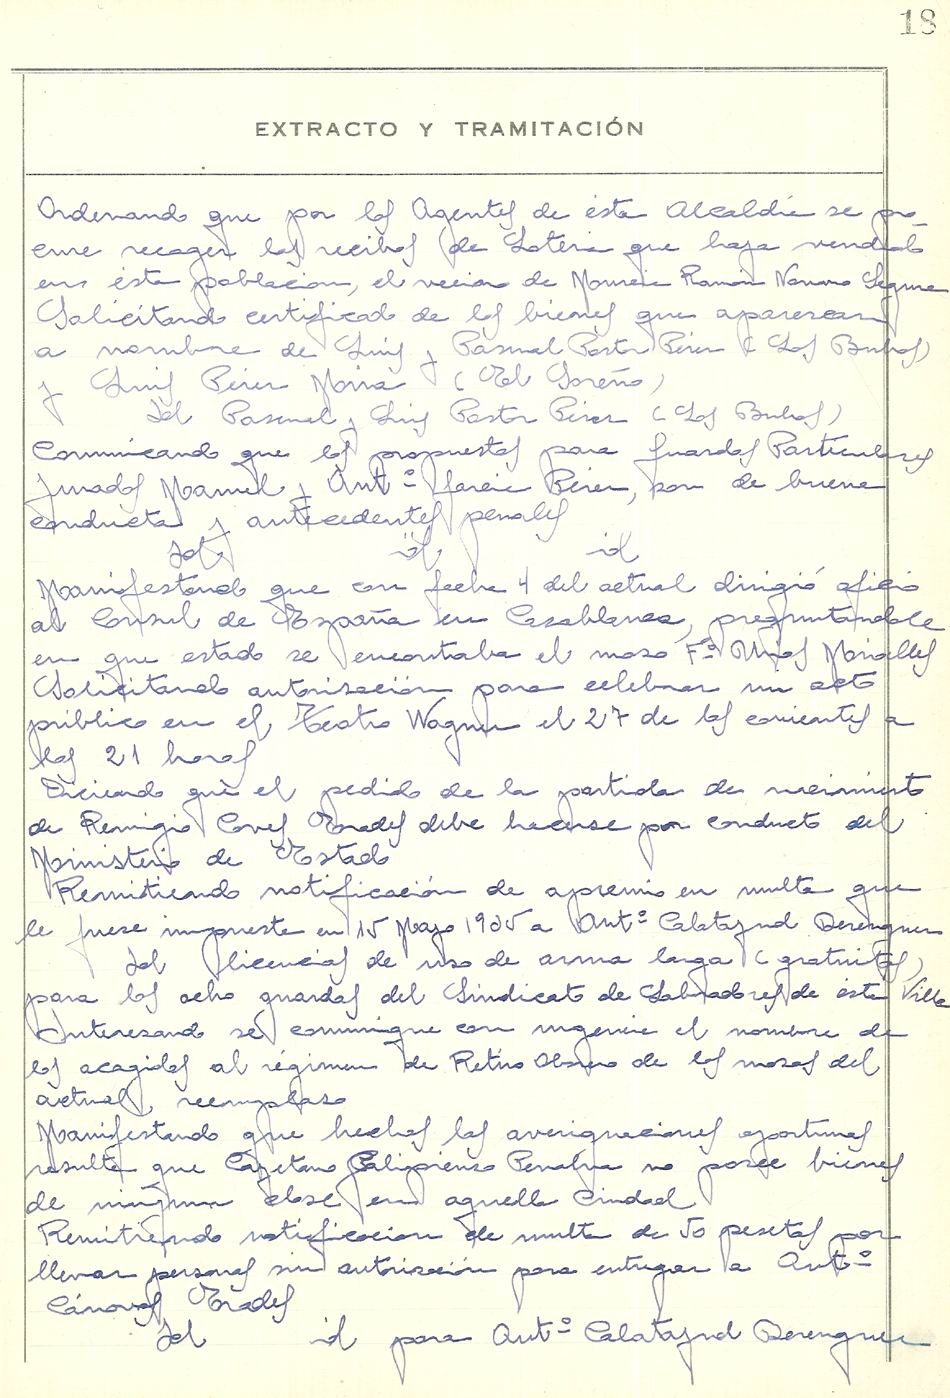 18
EXTRACTO Y TRAMITACIÓN
Ordenando que por los Agentes de ésta Alcaldia se pro_
cure recoger los recibos (de Loteria que haya vendido
en ésta poblacion, el vecino de Monovar Ramón Navarro Segura
Solicitando certificado de los bienes que aparezcan
a nombre de Luis y Pascual Pastor Pérez (Los Buhos)
y Luis Pérez Mira (El Soreño)
Id Pascual y Luis Pastor Pérez (Los Buhos)
Comunicando que los propuestos para Guardas Particulares
Jurados Manuel y Antº Garcia Pérez, son de buena
conducta y antecedentes penales
Id id id
Manifestando que con fecha 4 del actual dirigió oficio
al Consul de España en Casablanca, preguntandole
en que estado se encontraba el mozo Fº Miralles
Solicitando autorización para celebrar un acto
público en el Teatro Wagner el 27 de los corrientes a
las 21 horas
Diciendo que el pedido de la partida de nacimiento
de Remigio Coves Prades debe hacerse por conducto del
Ministerio de Estado
Remitiendo notificación de apremio en multa que
le fuese impuesta en 15 Mayo 1935 a Antº Calatayud Berenguer
Id licencias de uso de arma larga (gratuitas)
para los ocho guardas del Sindicato de Labradores de ésta Villa
Interesando se comunique con urgencia el nombre de
los acogidos al régimen de Retiro Obrero de los mozos del
actual reemplazo
Manifestando que hechas las averiguaciones oportunas
resulta que Cayetano Galipienso Penalva no posee bienes
de ninguna clase en aquella Ciudad
Remitiendo notificacion de multa de 50 pesetas por
llevar personas sin autorización para entregar a Antº
Cánovas Prades
Id id para Antº Calatayud Berenguer